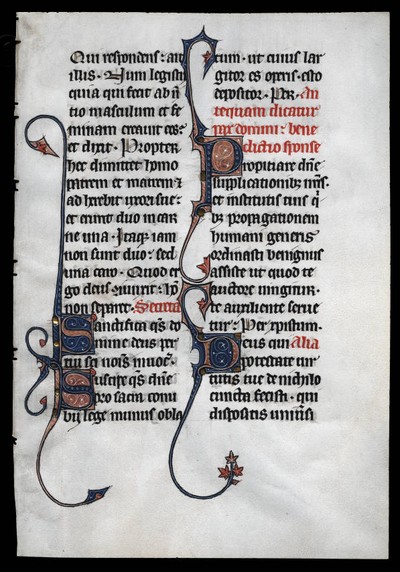 Qui respondens: ait
illis. Num legistis
quia qui fecit ab in
tio masculum et fe
minam creauit eos:
et dixit. Propter
hoc dimittet homo
patrem et matrem: et
ad herebit uxori sue:
et erunt duo in car
ne una. Itaque iam
non sunt duo: sed
una caro. Quod er
go deus iunxit: ho
non separet. Secreta
Sanctifica qs do
mine deus per
tui sci nois inuoc.
Suscipe qs dne
pro sacra conu
bij lege munus obla
tum. ut cuius lar
gitor es operis. esto
dispositor. Per. An
tequam dicatur
pax domini: bene
dictio sponse
Propitiare dne
supplicationibz nris.
et institutis tuis q
bz propagationem
humani generis
ordinasti benignus
assiste ut quod te
auctore iungitur.
te auxiliante serue
tur. Per xpistum.
Deus qui Alia
potestate uir
tutis tue de nichilo
cuncta fecisti. qui
dispositis uniusi